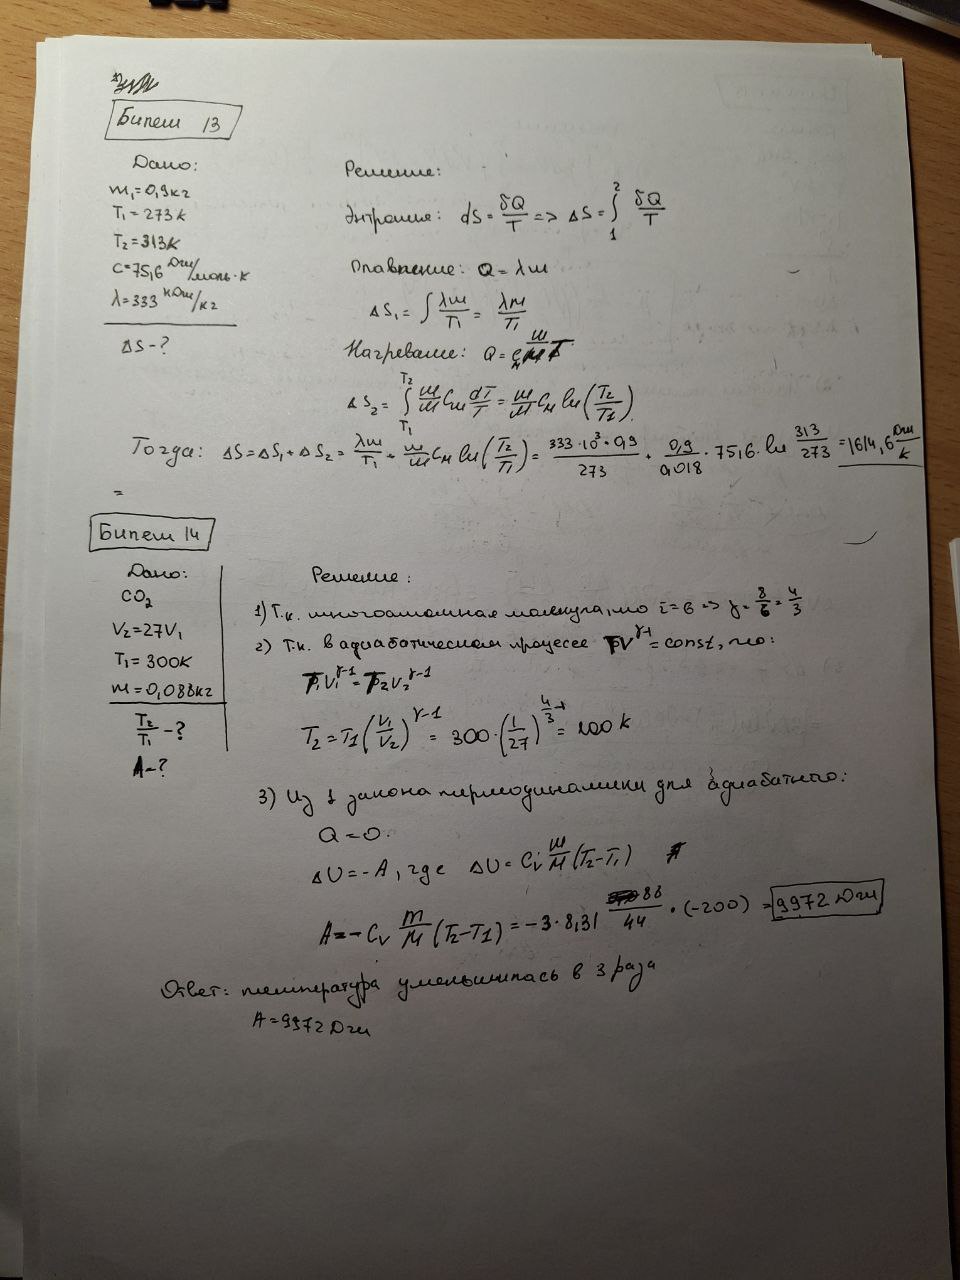 Билет 13
Дано:
m₁=0,9кг
T₁=273К
T₂=313К
C=75,6 Дж/моль·К
λ=333 кДж/кг
ΔS-?
Решение:
Энтропия: dS = δQ/T => ΔS = ∫₁² δQ/T
Плавление: Q = λm
ΔS₁ = ∫ λm/T₁ = λm/T₁
Нагревание: Q = Cм m/M T
ΔS₂ = ∫_T₁^T₂ m/M Cм dT/T = m/M Cм ln(T₂/T₁)
Тогда: ΔS = ΔS₁ + ΔS₂ = λm/T₁ + m/M Cм ln(T₂/T₁) = 333·10³·0,9/273 + 0,9/0,018 · 75,6 · ln 313/273 = 1614,6 Дж/К
=
Билет 14
Дано:
CO₂
V₂=27V₁
T₁=300К
m=0,088кг
T₂/T₁ -?
A-?
Решение:
1) Т.к. многоатомная молекула, то i=6 => γ = 8/6 = 4/3
2) Т.к. в адиабатическом процессе TV^γ-1 = const, то:
T₁V₁^γ-1 = T₂V₂^γ-1
T₂ = T₁(V₁/V₂)^γ-1 = 300·(1/27)^4/3-1 = 100 К
3) Из 1 закона термодинамики для адиабатного:
Q=0.
ΔU=-A, где ΔU = Cv m/M (T₂-T₁)
A = - Cv m/M (T₂-T1) = -3·8,31 88/44 · (-200) = 9972 Дж
Ответ: температура уменьшилась в 3 раза
A=9972 Дж